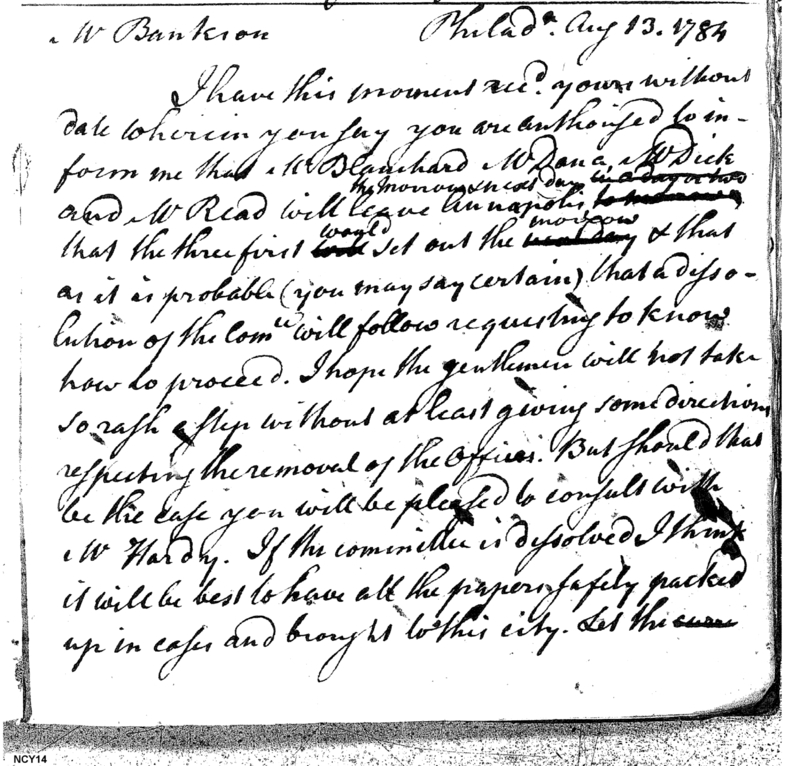 Mr Bankson Philada. Aug 13. 1784
I have this moment recd. yours without
date wherein you say you are authorised to in-
form me that Mr Blanchard Mr Dana, Mr Dick
the morrow next day in a day or two
and Mr Read will leave Annapolis to morrow
would morrow
that the three first will set out the next day & that
as it is probable (you may say certain) that a disso-
lution of the Comee will follow requesting to know
how to proceed. I hope the gentlemen will not take
so rash a step without at least giving some directions
respecting the removal of the Offices. But should that
be the case you will be pleased to consult with
Mr Hardy. If the committee is dissolved I think
it will be best to have all the papers safely packed
up in cases and brought to this city. Let the
NCY14